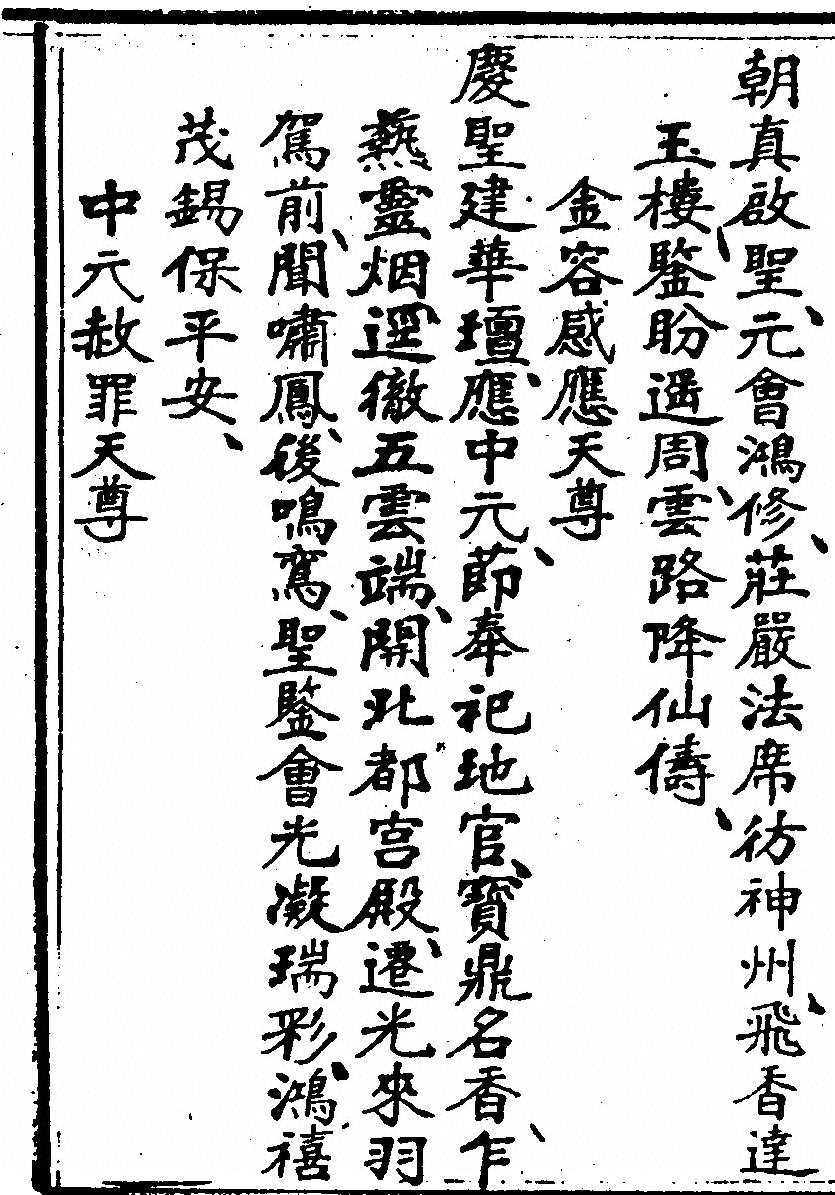 朝真啟聖、元會鴻修、莊嚴法席彷神州、飛香達
玉樓、鑒盼遥周、雲路降仙儔、
金容感應天尊
慶聖建華壇、應中元節、奉祀地官、寳鼎名香、乍
爇靈烟逕徹五雲端、開北都宫殿、遷光來羽
駕前、聞嘯鳳、後鳴鸞、聖鑒會光凝瑞彩、鴻禧
茂錫保平安、
中元赦罪天尊